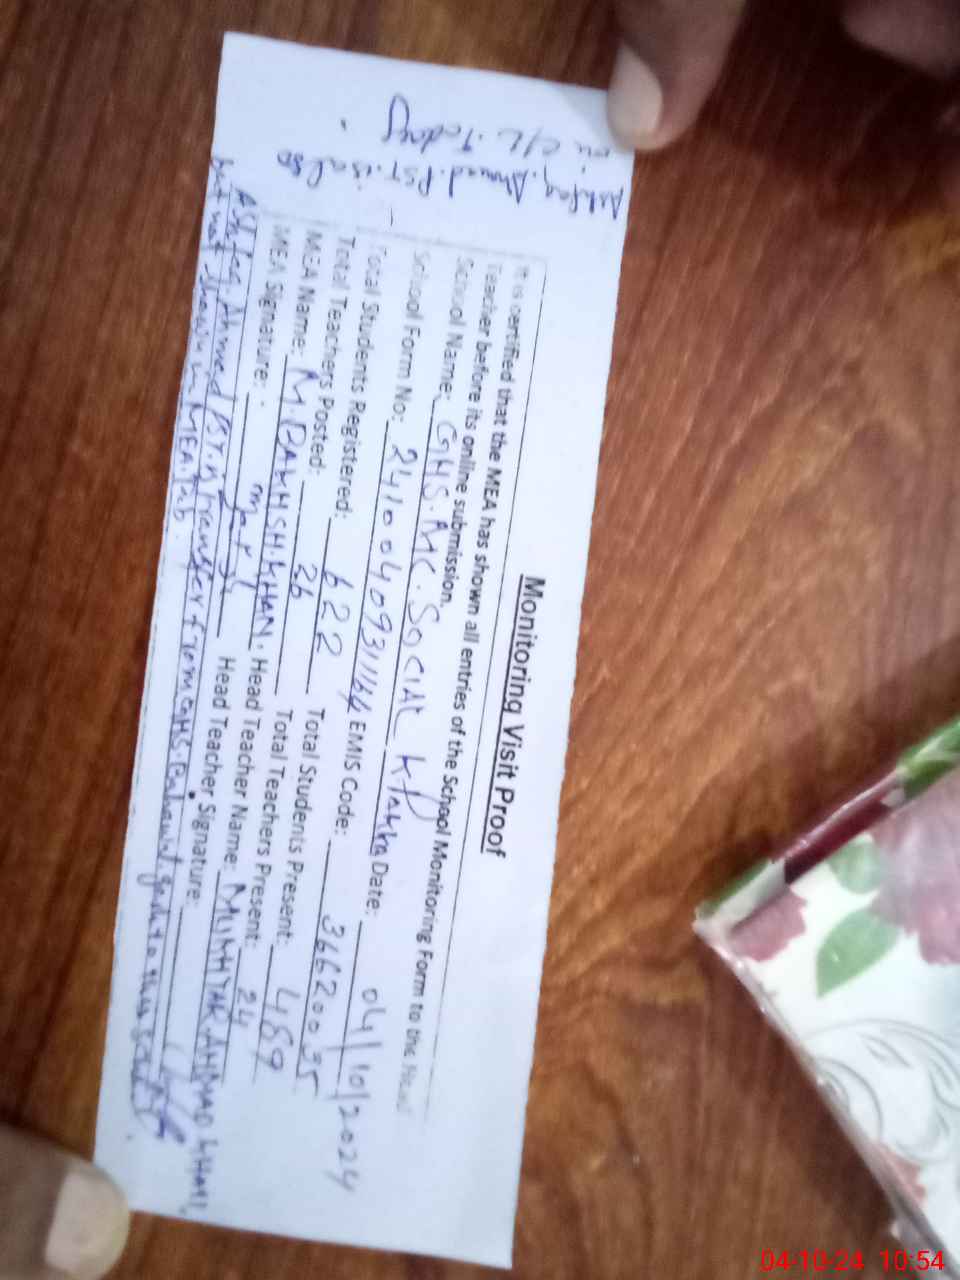 Monitoring Visit Proof
It is certified that the MEA has shown all entries of the School Monitoring Form to the Head
Teacher before its online submission.
School Name: GHS. MC. SOCIAL
School Form No: Date: 04/10/2024
Total Students Registered: 622 EMIS Code: 36620035
Total Teachers Posted: 26 Total Students Present: 489
MEA Name: M. BAKHSH. KHAN. Total Teachers Present: 24
MEA Signature: Head Teacher Name: AHMAD
Head Teacher Signature:
Ashfaq Ahmed transfer from GHS. to this
but not shown in MEA. Tab.
Ashfaq Ahmed PST is
on C/L Today
04-10-24 10:54